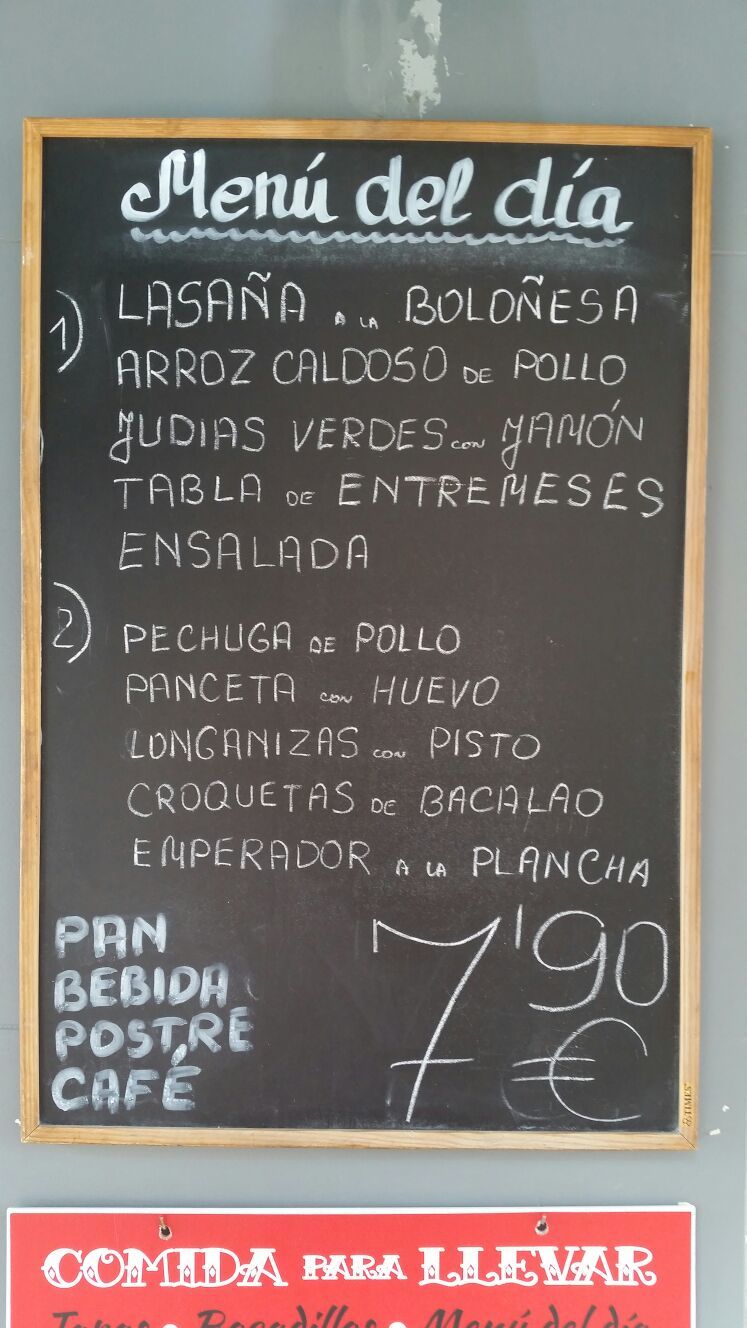 Menú del día
1) LASAÑA A LA BOLOÑESA
ARROZ CALDOSO DE POLLO
JUDIAS VERDES con JAMÓN
TABLA DE ENTREMESES
ENSALADA
2) PECHUGA DE POLLO
PANCETA con HUEVO
LONGANIZAS con PISTO
CROQUETAS DE BACALAO
EMPERADOR A LA PLANCHA
PAN
BEBIDA
POSTRE
CAFÉ
7'90
€
COMIDA PARA LLEVAR
Tapas • Bocadillos • Menú del día